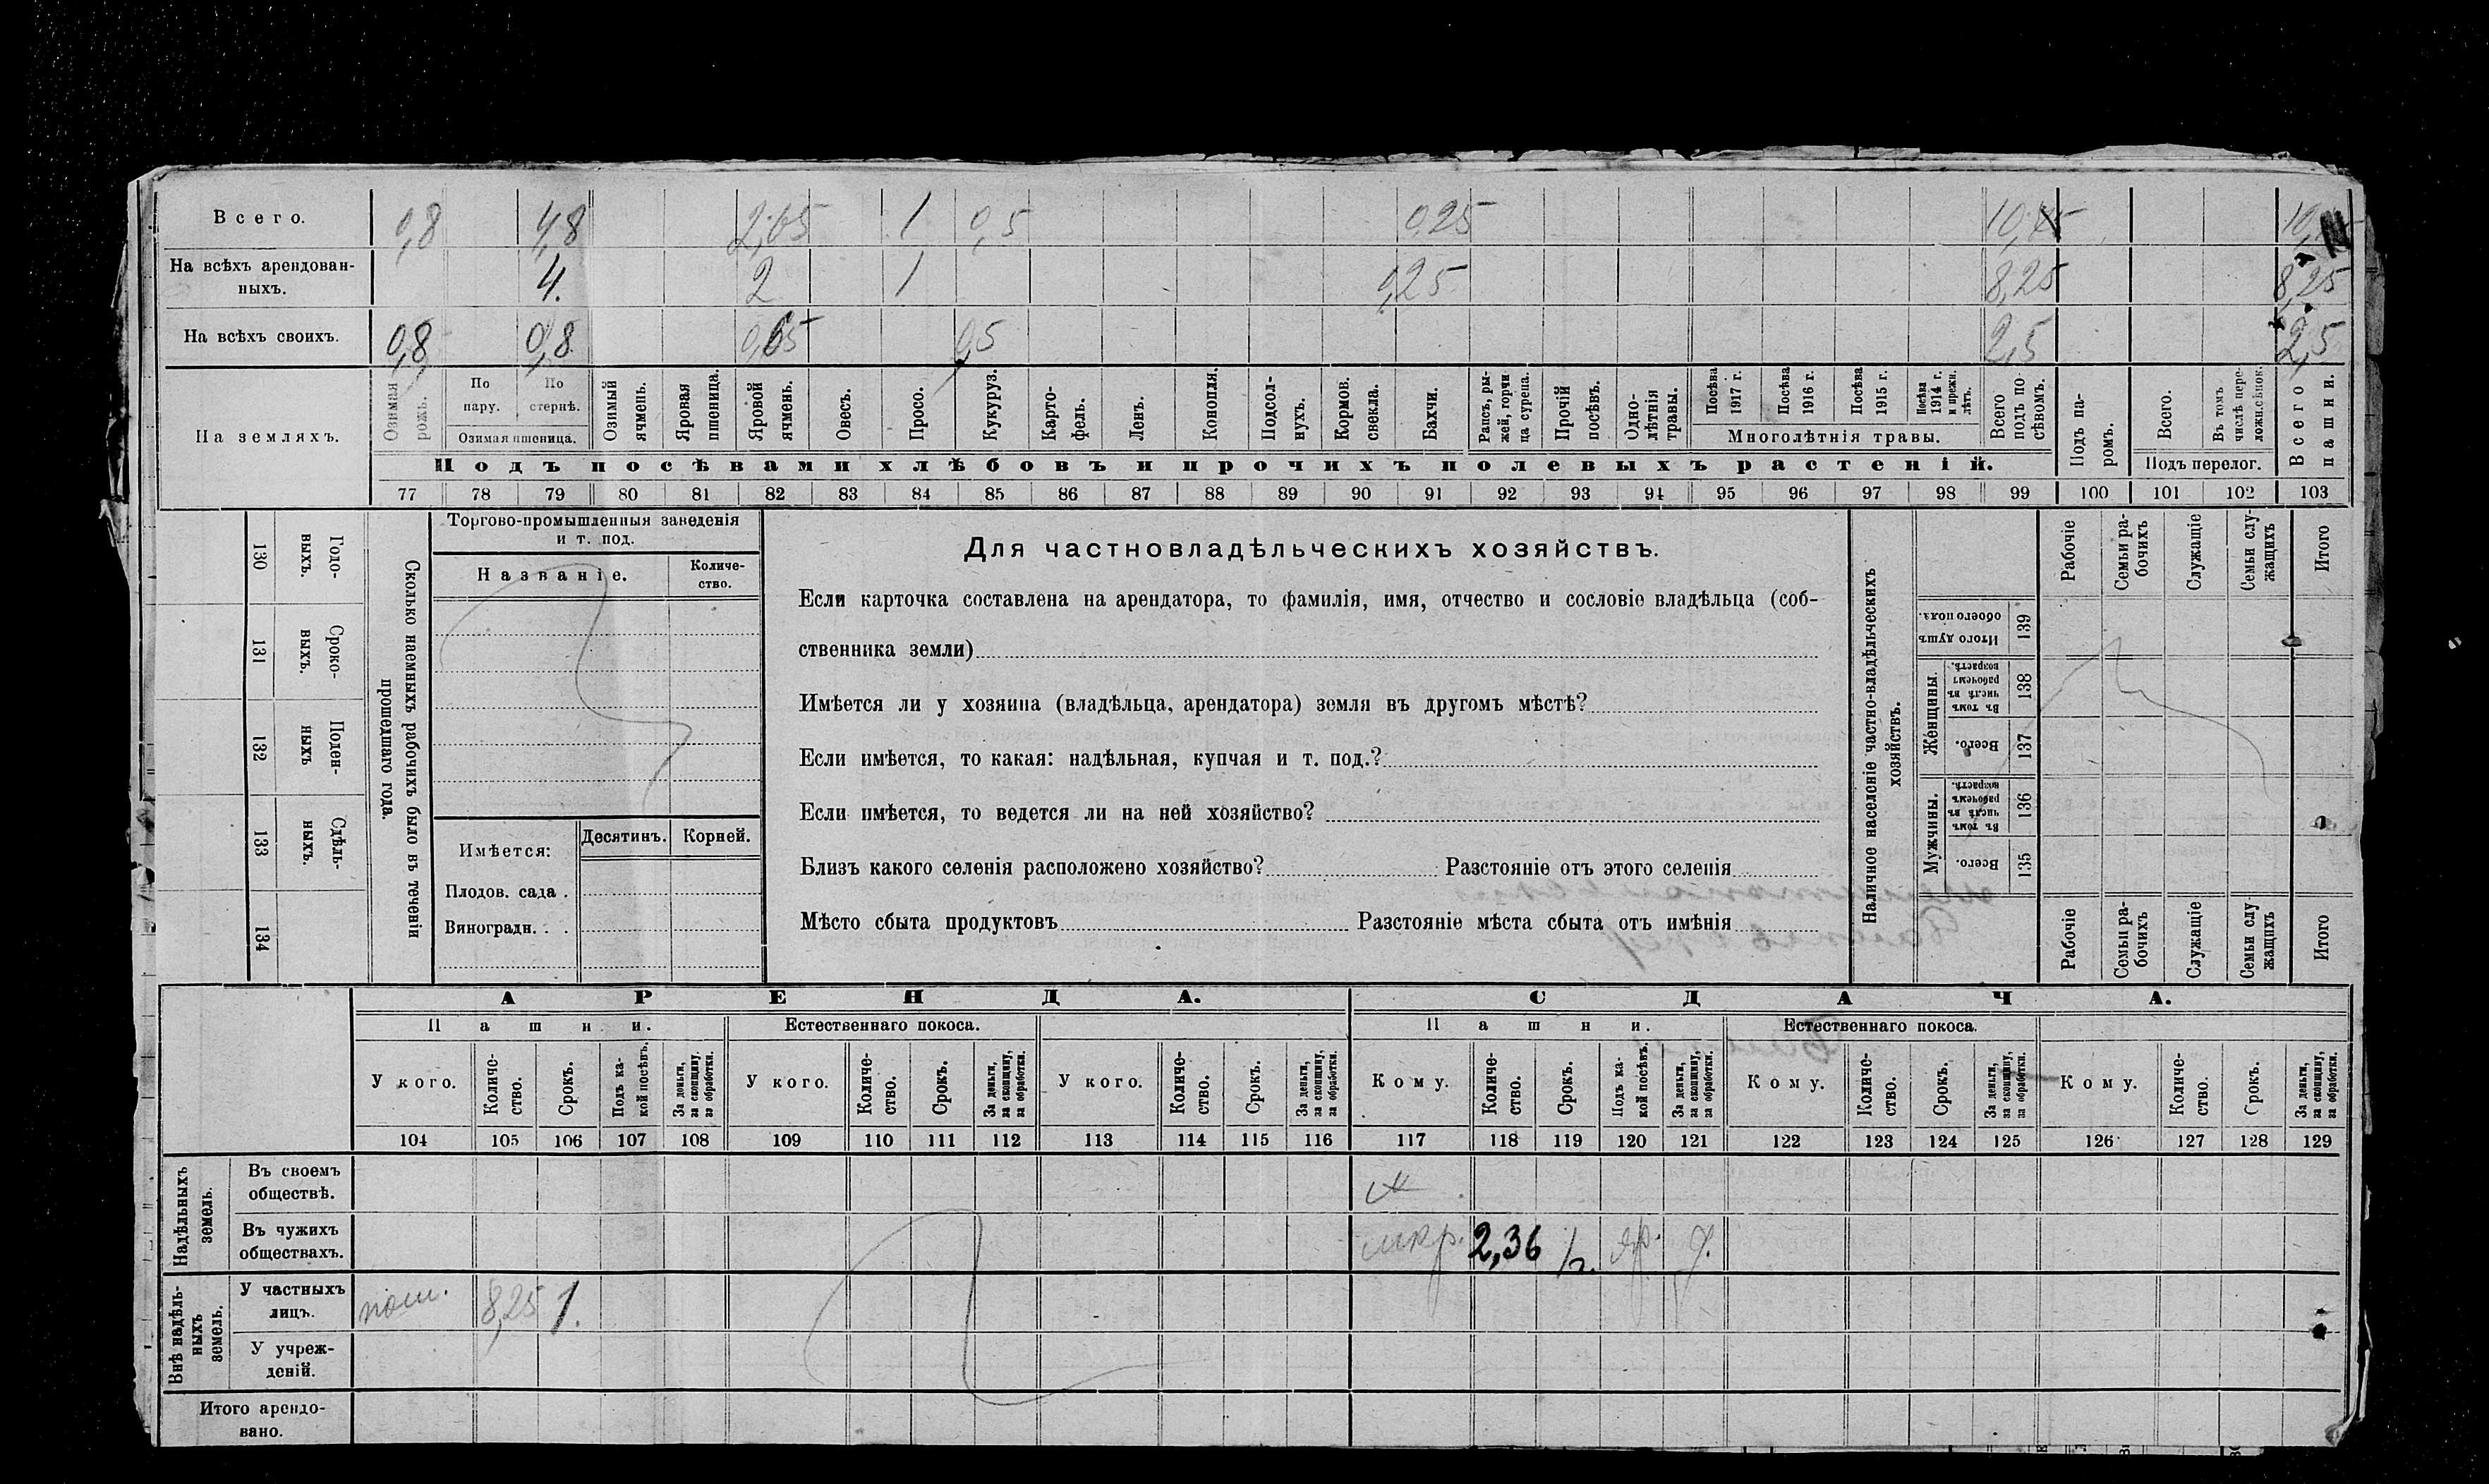 Всего. 0,8 4,8 2,65 1 0,5 0,25
На всѣхъ арендован-
ныхъ. 4. 2 1 0,25 8,25 8,25
На всѣхъ своихъ. 0,8 0,8 0,5 2,5 2,5
На земляхъ.
Озимая рожь.
По пару.
По стернѣ.
Озимая пшеница.
Озимый ячмень.
Яровая пшеница.
Яровой ячмень.
Овесъ.
Просо.
Кукуруз.
Карто-
фель.
Ленъ.
Конопля.
Подсол-
нухъ.
Кормов.
свекла.
Бахчи.
Рапсъ, ры-
жей, горчи-
ца сурепа.
Прочій посѣвъ.
Одно-
лѣтнія травы.
Посѣва 1917 г.
Посѣва 1916 г.
Посѣва 1915 г.
Посѣва 1914 г. и прежн. лѣтъ.
Многолѣтнія травы.
Всего подъ по
сѣвомъ.
Подъ па-
ромъ.
Всего.
Въ томъ числѣ пере-
ложн.сѣнок.
Подъ перелог.
Всего пашни.
Подъ посѣвами хлѣбовъ и прочихъ полевыхъ растеній.
77 78 79 80 81 82 83 84 85 86 87 88 89 90 91 92 93 94 95 96 97 98 99 100 101 102 103
Годо-
выхъ.
130
Сроко-
выхъ.
131
Поден-
ныхъ
132
Сдѣль-
ныхъ.
133
134
Сколько наемныхъ рабочихъ было въ теченіи
прошлаго года.
Торгово-промышленныя заведенія
и т. под.
Названіе.
Количе-
ство.
Имѣется:
Десятинъ. Корней.
Плодов. сада .
Виноградн. . .
Для частновладѣльческихъ хозяйствъ.
Если карточка составлена на арендатора, то фамилія, имя, отчество и сословіе владѣльца (соб-
ственника земли)
Имѣется ли у хозяина (владѣльца, арендатора) земля въ другомъ мѣстѣ?
Если имѣется, то какая: надѣльная, купчая и т. под.?
Если имѣется, то ведется ли на ней хозяйство?
Близъ какого селенія расположено хозяйство? Разстояніе отъ этого селенія
Мѣсто сбыта продуктовъ Разстояніе мѣста сбыта отъ имѣнія
Наличное населеніе частно-владѣльческихъ
хозяйствъ.
Рабочіе
Семьи ра-
бочихъ
Служащіе
Семьи слу-
жащихъ
Итого
Итого душъ
обоего пола.
139
Женщины.
Въ томъ числѣ въ рабочемъ возрастѣ.
138
Всего.
137
Мужчины.
Въ томъ числѣ въ рабочемъ возрастѣ.
136
Всего.
135
Рабочіе
Семьи ра-
бочихъ
Служащіе
Семьи слу
жащихъ
Итого
АРЕНДА. СДАЧА.
Пашни. Естественнаго покоса. Пашни. Естественнаго покоса.
У кого. Количе-
ство. Срокъ. Подъ ка-
кой посѣвъ. За деньги,
за скопщину,
за обработки.
У кого. Количе-
ство. Срокъ. За деньги,
за скопщину,
за обработки.
У кого. Количе-
ство. Срокъ. За деньги,
за скопщину,
за обработки.
Кому. Количе-
ство. Срокъ. Подъ ка-
кой посѣвъ. За деньги,
за скопщину,
за обработки.
Кому. Количе-
ство. Срокъ. За деньги,
за скопщину,
за обработки.
Кому. Количе-
ство. Срокъ. За деньги,
за скопщину,
за обработки.
104 105 106 107 108 109 110 111 112 113 114 115 116 117 118 119 120 121 122 123 124 125 126 127 128 129
Надѣльныхъ
земель.
Въ своемъ
обществѣ.
Въ чужихъ
обществахъ. 2,36
Внѣ надѣль-
ныхъ
земель.
У частныхъ
лицъ. пом. 8,25 1.
У учреж-
деній.
Итого арендо-
вано.